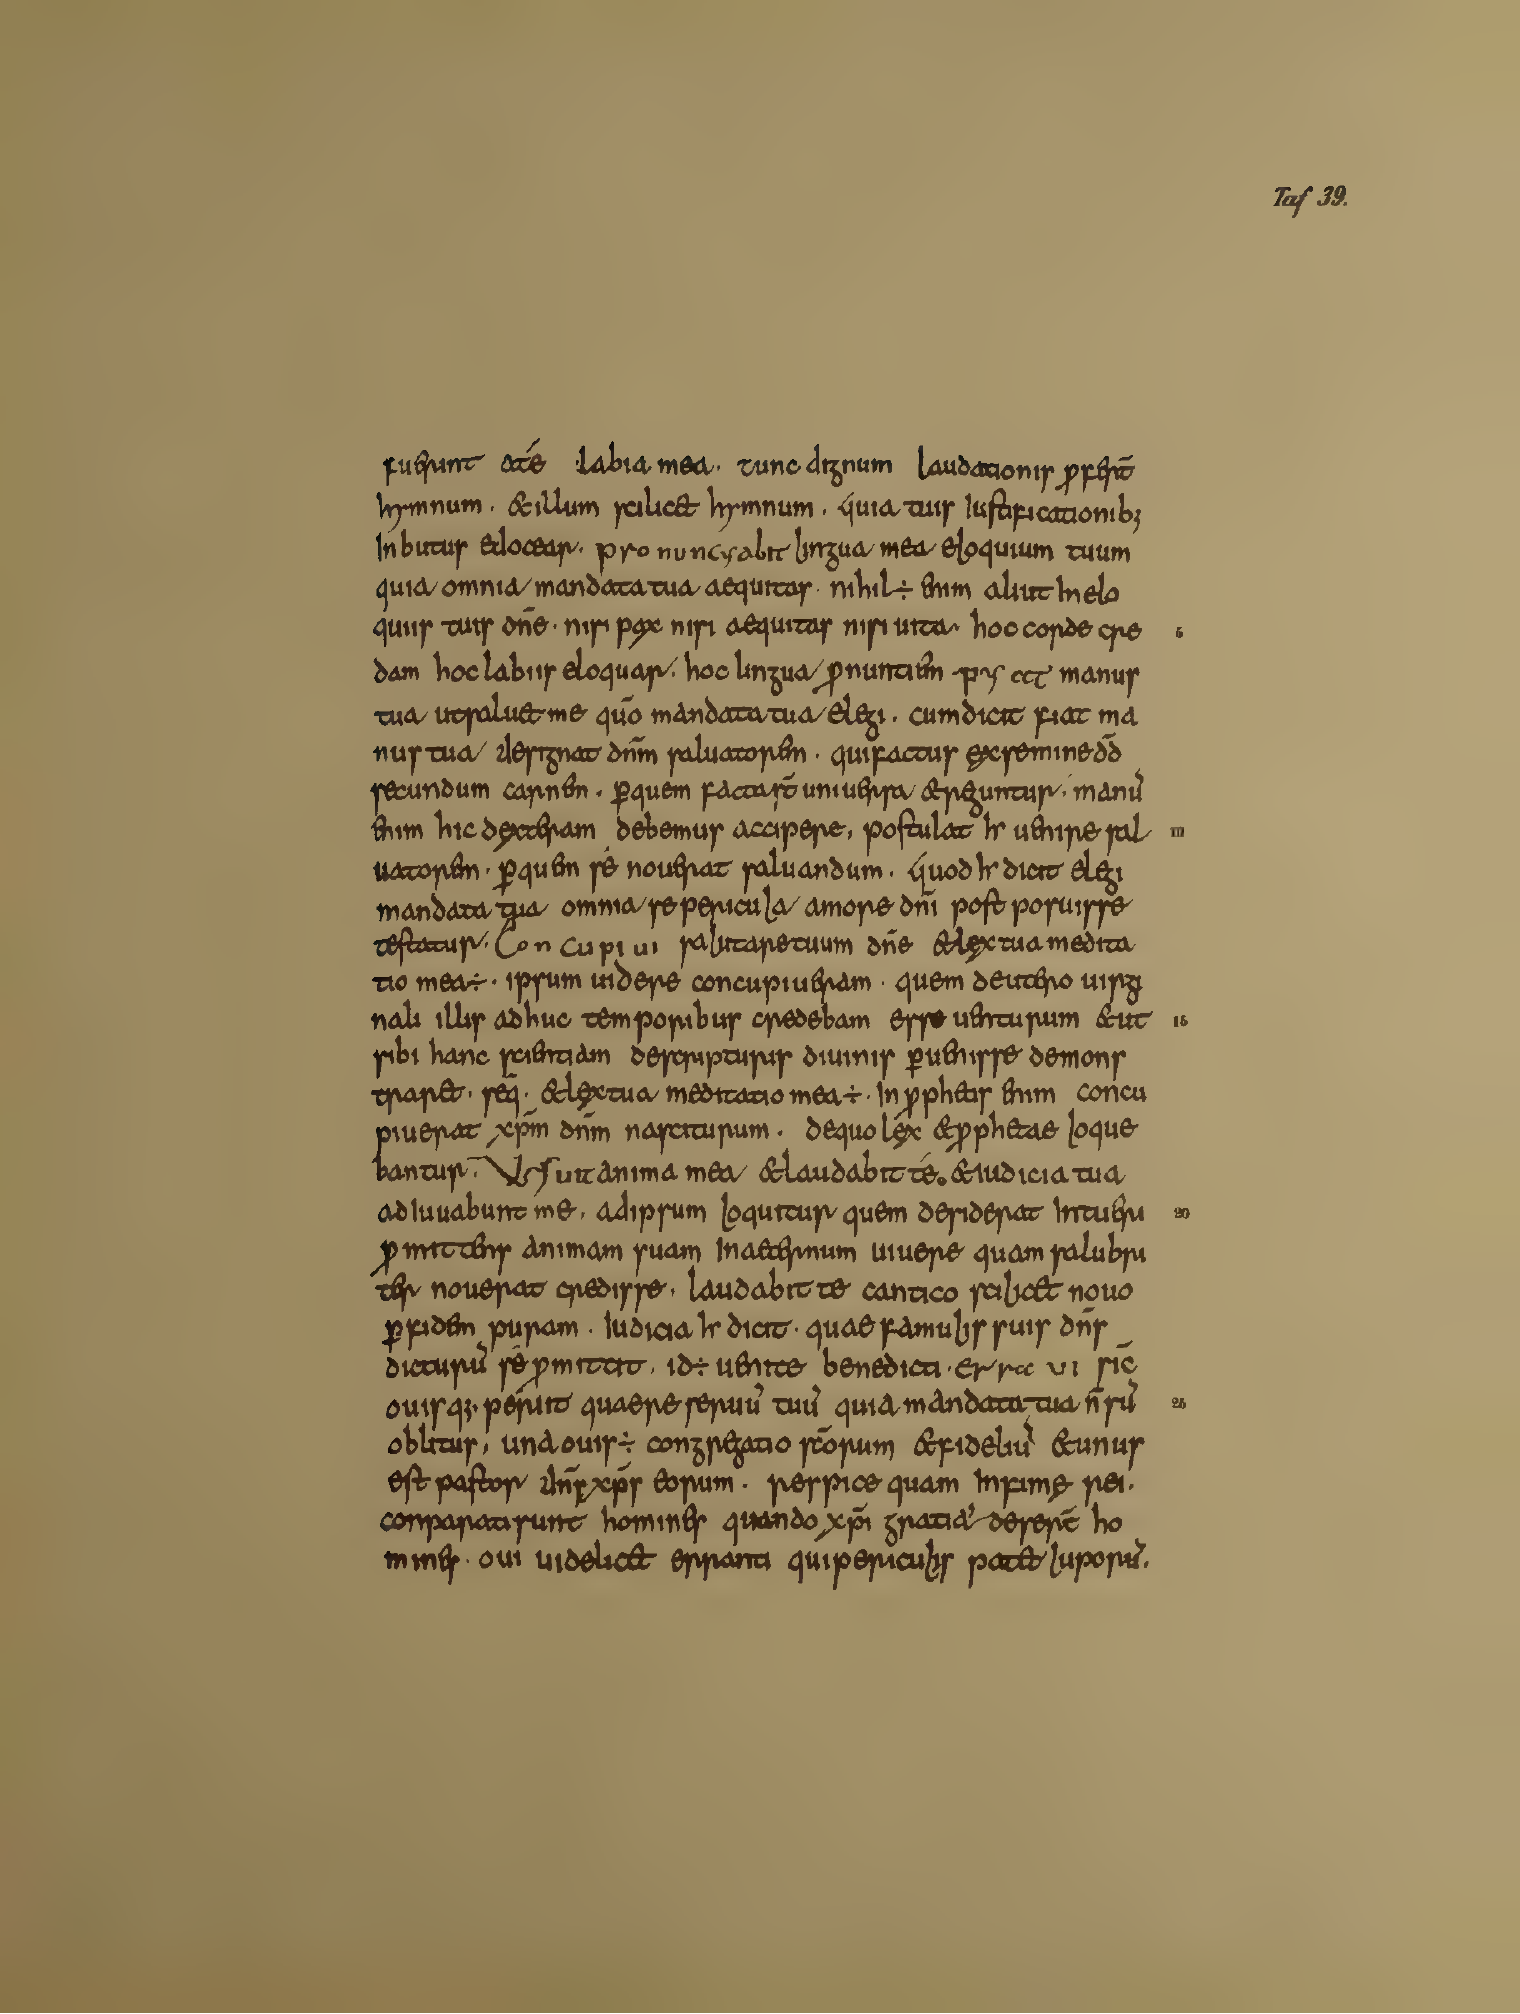 Taf 39.
fuerint a té labia mea · tunc dignum laudationis ꝓferēt
hymnum · & illum scilic& hymnum · quia tuis iustificationibꝫ
inbutus & docear · pronuncyabit lingua mea eloquium tuum
quia omnia mandata tua aequitas · nihil ÷ enim aliut in elo
quiis tuis dn̄e · nisi pax nisi aequitas nisi uita · hoc corde cre 5
dam hoc labiis eloquar · hoc lingua ꝓnuntiem manus
tua ut salu& me quō mandata tua elegi · cum dicit fiat ma
nus tua designat dn̄m saluatorem · qui factus ex semine dd̄
secundum carnem · ꝑ quem facta st̄ uniuersa & reguntur · manū
enim hic dexteram debemus accipere, postulat hr uenire sal 10
uatorem · ꝑ quem sé nouerat saluandum · quod hr dicit elegi
mandata tua omnia se pericula amore dn̄i post posuisse
testatur · Concupiui salutare tuum dn̄e & lex tua medita
tio mea ÷ · ipsum uidere concupiueram · quem de utero uirgi
nali illis adhuc temporibus credebam esse uenturum & ut 15
sibi hanc scientiam descripturis diuinis ꝑuenisse demons
trar& · seq̄ · & lex tua meditatio mea ÷ · in ꝓphetis enim concu
piuerat xp̄m dn̄m nasciturum · de quo léx & ꝓphetae loque
bantur · Uiuit anima mea & laudabit té · & iudicia tua
adiuuabunt me, ad ipsum loquitur quem desiderat intueri 20
ꝓmittens animam suam in aeternum uiuere quam salubri
ter nouerat credisse, laudabit te cantico scilic& nouo
ꝑ fidem puram · iudicia hr dicit · quae famulis suis dn̄s
dicturū sé ꝓmittit, id ÷ uenite benedicti · Erraui sic̄
ouis q; periit quaere seruū tuū quia mandata tua n̄ sū 25
oblitus, una ouis ÷ congregatio sc̄orum & fideliū & unus
est pastor dn̄s xp̄s eorum · respice quam infimę rei ·
conparati sunt homines quando xp̄i gratiā deserēt ho
mines · oui uidelic& erranti qui periculis pat& luporū ·